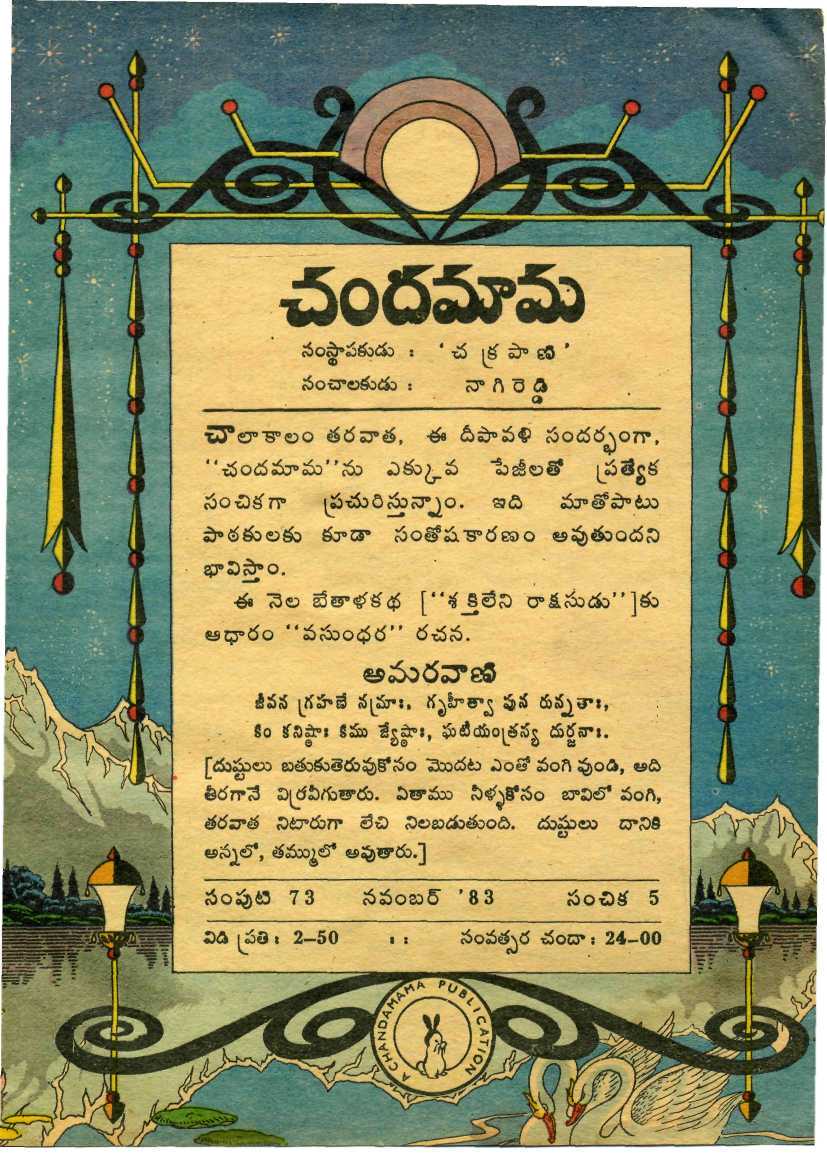 చందమామ
సంస్థాపకుడు : 'చక్రపాణి'
సంచాలకుడు : నాగిరెడ్డి
చాలాకాలం తరవాత, ఈ దీపావళి సందర్భంగా,
‘‘చందమామ’’ను ఎక్కువ పేజీలతో ప్రత్యేక
సంచికగా ప్రచురిస్తున్నాం. ఇది మాతోపాటు
పాఠకులకు కూడా సంతోషకారణం అవుతుందని
భావిస్తాం.
ఈ నెల బేతాళకథ [‘‘శక్తిలేని రాక్షసుడు’’]కు
ఆధారం ‘‘వసుంధర’’ రచన.
అమరవాణి
జీవన గ్రహణే నమ్రాః, గృహీత్వా పున రున్నతాః,
కిం కనిష్ఠాః కిము జ్యేష్ఠాః, ఘటీయంత్రస్య దుర్జనాః.
[దుష్టులు బతుకుతెరువుకోసం మొదట ఎంతో వంగి వుండి, అది
తీరగానే విర్రవీగుతారు. ఏతాము నీళ్ళకోసం బావిలో వంగి,
తరవాత నిటారుగా లేచి నిలబడుతుంది. దుష్టులు దానికి
అన్నలో, తమ్ములో అవుతారు.]
సంపుటి 73 నవంబర్ '83 సంచిక 5
విడి ప్రతి : 2—50 :: సంవత్సర చందా : 24—00
A CHANDAMAMA PUBLICATION